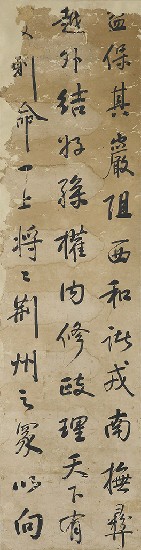 益保其巖阻西和諸戎南撫彝
越外結好孫權内修政理天下有
則命一上將々荆州之眾以向